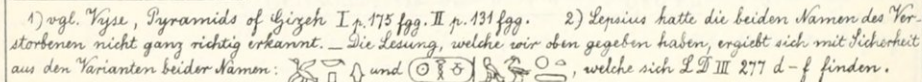 1) vgl. Vyse, Pyramids of Gizeh I p. 175 fgg. II p. 131 fgg. 2) Lepsius hatte die beiden Namen des Ver-
storbenen nicht ganz richtig erkannt. – Die Lesung, welche wir oben gegeben haben, ergiebt sich mit Sicherheit
aus den Varianten beider Namen: und , welche sich LD III 277 d–f finden.